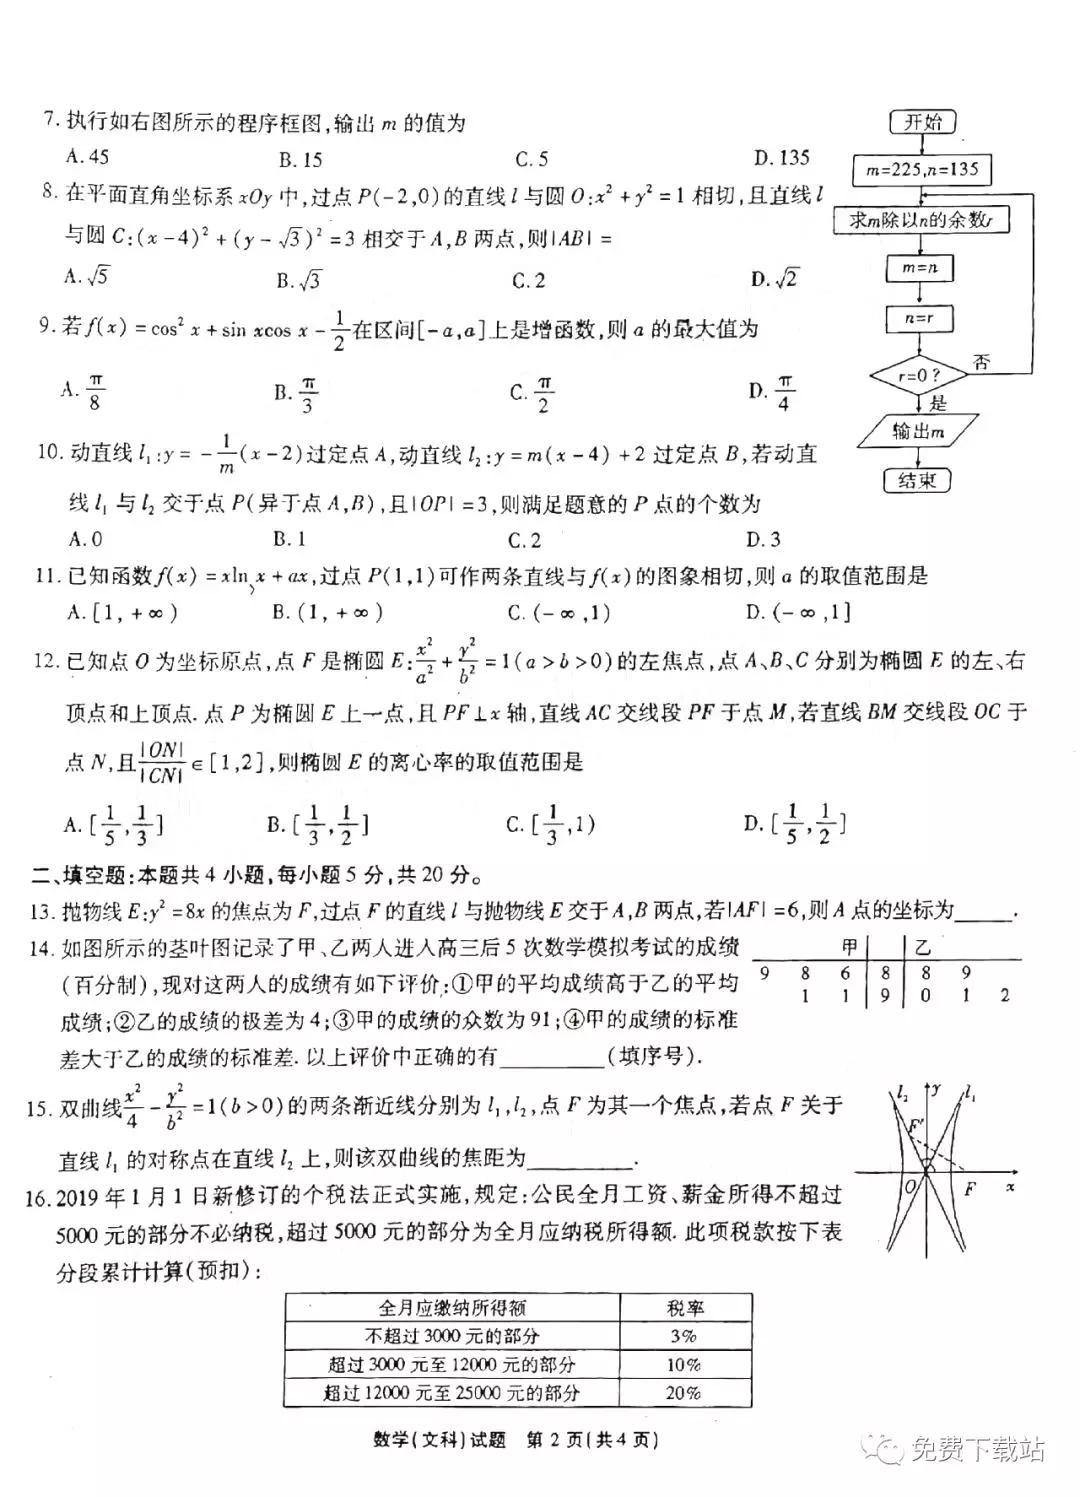 7. 执行如右图所示的程序框图,输出 m 的值为
A. 45 B. 15 C. 5 D. 135
8. 在平面直角坐标系 xOy 中,过点 P(-2,0)的直线 l 与圆 O:x²+y²=1 相切,且直线 l
与圆 C:(x-4)²+(y-√3)²=3 相交于 A,B 两点,则|AB|=
A. √5 B. √3 C. 2 D. √2
9. 若 f(x)=cos²x+sin xcos x-1/2在区间[-a,a]上是增函数,则 a 的最大值为
A. π/8 B. π/3 C. π/2 D. π/4
10. 动直线 l₁:y=-1/m(x-2)过定点 A,动直线 l₂:y=m(x-4)+2 过定点 B,若动直
线 l₁ 与 l₂ 交于点 P(异于点 A,B),且|OP|=3,则满足题意的 P 点的个数为
A. 0 B. 1 C. 2 D. 3
开始
m=225,n=135
求m除以n的余数r
m=n
n=r
r=0?
否
是
输出m
结束
11. 已知函数 f(x)=xln x+ax,过点 P(1,1)可作两条直线与 f(x)的图象相切,则 a 的取值范围是
A. [1,+∞) B. (1,+∞) C. (-∞,1) D. (-∞,1]
12. 已知点 O 为坐标原点,点 F 是椭圆 E:x²/a²+y²/b²=1(a>b>0)的左焦点,点 A、B、C 分别为椭圆 E 的左、右
顶点和上顶点. 点 P 为椭圆 E 上一点,且 PF⊥x 轴,直线 AC 交线段 PF 于点 M,若直线 BM 交线段 OC 于
点 N,且|ON|/|CN|∈[1,2],则椭圆 E 的离心率的取值范围是
A. [1/5,1/3] B. [1/3,1/2] C. [1/3,1) D. [1/5,1/2]
二、填空题:本题共 4 小题,每小题 5 分,共 20 分。
13. 抛物线 E:y²=8x 的焦点为 F,过点 F 的直线 l 与抛物线 E 交于 A,B 两点,若|AF|=6,则 A 点的坐标为______.
14. 如图所示的茎叶图记录了甲、乙两人进入高三后 5 次数学模拟考试的成绩
(百分制),现对这两人的成绩有如下评价:①甲的平均成绩高于乙的平均
成绩;②乙的成绩的极差为 4;③甲的成绩的众数为 91;④甲的成绩的标准
差大于乙的成绩的标准差. 以上评价中正确的有__________(填序号).
甲 乙
9 8 6 8 8 9
1 1 9 0 1 2
15. 双曲线x²/4-y²/b²=1(b>0)的两条渐近线分别为 l₁,l₂,点 F 为其一个焦点,若点 F 关于
直线 l₁ 的对称点在直线 l₂ 上,则该双曲线的焦距为__________.
l₂ y l₁
F′
O F x
16. 2019 年 1 月 1 日新修订的个税法正式实施,规定:公民全月工资、薪金所得不超过
5000 元的部分不必纳税,超过 5000 元的部分为全月应纳税所得额. 此项税款按下表
分段累计计算(预扣):
全月应缴纳所得额 税率
不超过 3000 元的部分 3%
超过 3000 元至 12000 元的部分 10%
超过 12000 元至 25000 元的部分 20%
数学(文科)试题 第 2 页(共 4 页)
免费下载站